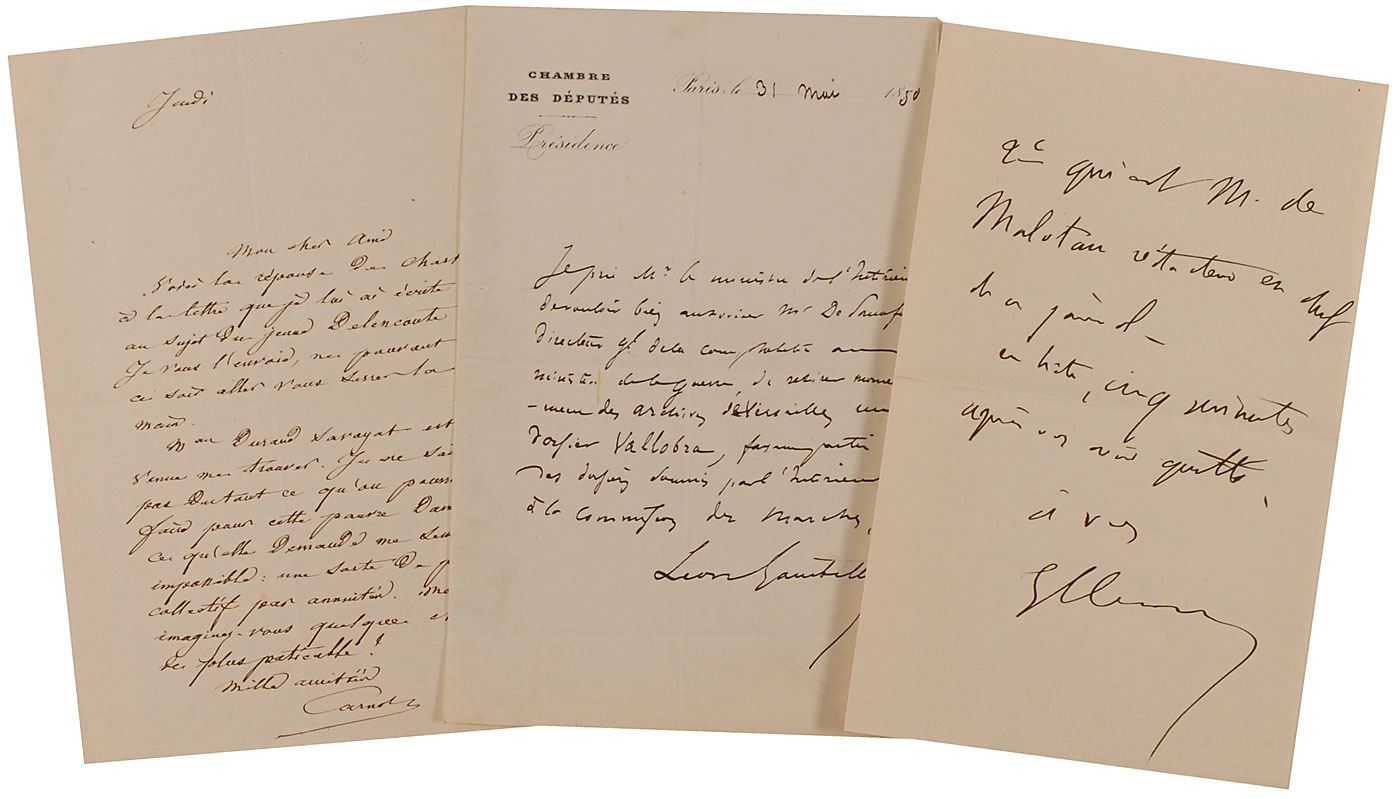 Jeudi
Mon cher Ami
Voici la réponse de Chast
à la lettre que je lui ai écrite
au sujet du jeune Delencoute
Je vous l'envoie, ne pouvant
ce soir aller vous serrer la
main.
Mme Durand Savoyat est
venue me trouver. Je ne sai
pas du tout ce qu'on pourr
faire pour cette pauvre Dam
ce qu'elle demande me sem
impossible : une sorte de p
collectif par annuités.
imaginez-vous quelque
de plus praticable ?
Mille amitiés
Carnot
CHAMBRE
DES DÉPUTÉS
Présidence
Paris, le 31 mai 1880
Je prie Mr le ministre de l'Intérieu
de vouloir bien autoriser Mr De
Directeur gl de la comptabilité au
ministère de la guerre, de retirer mome
-ment des archives de Versailles un
dossier Vallobra, faisant partie
des dossiers soumis par l'Intérieur
à la commission des marchés.
Leon Gambett
qui est M. de
Molotau rédacteur en chef
d'un journal
en hâte, cinq minutes
après vous avoir quitté.
à vous